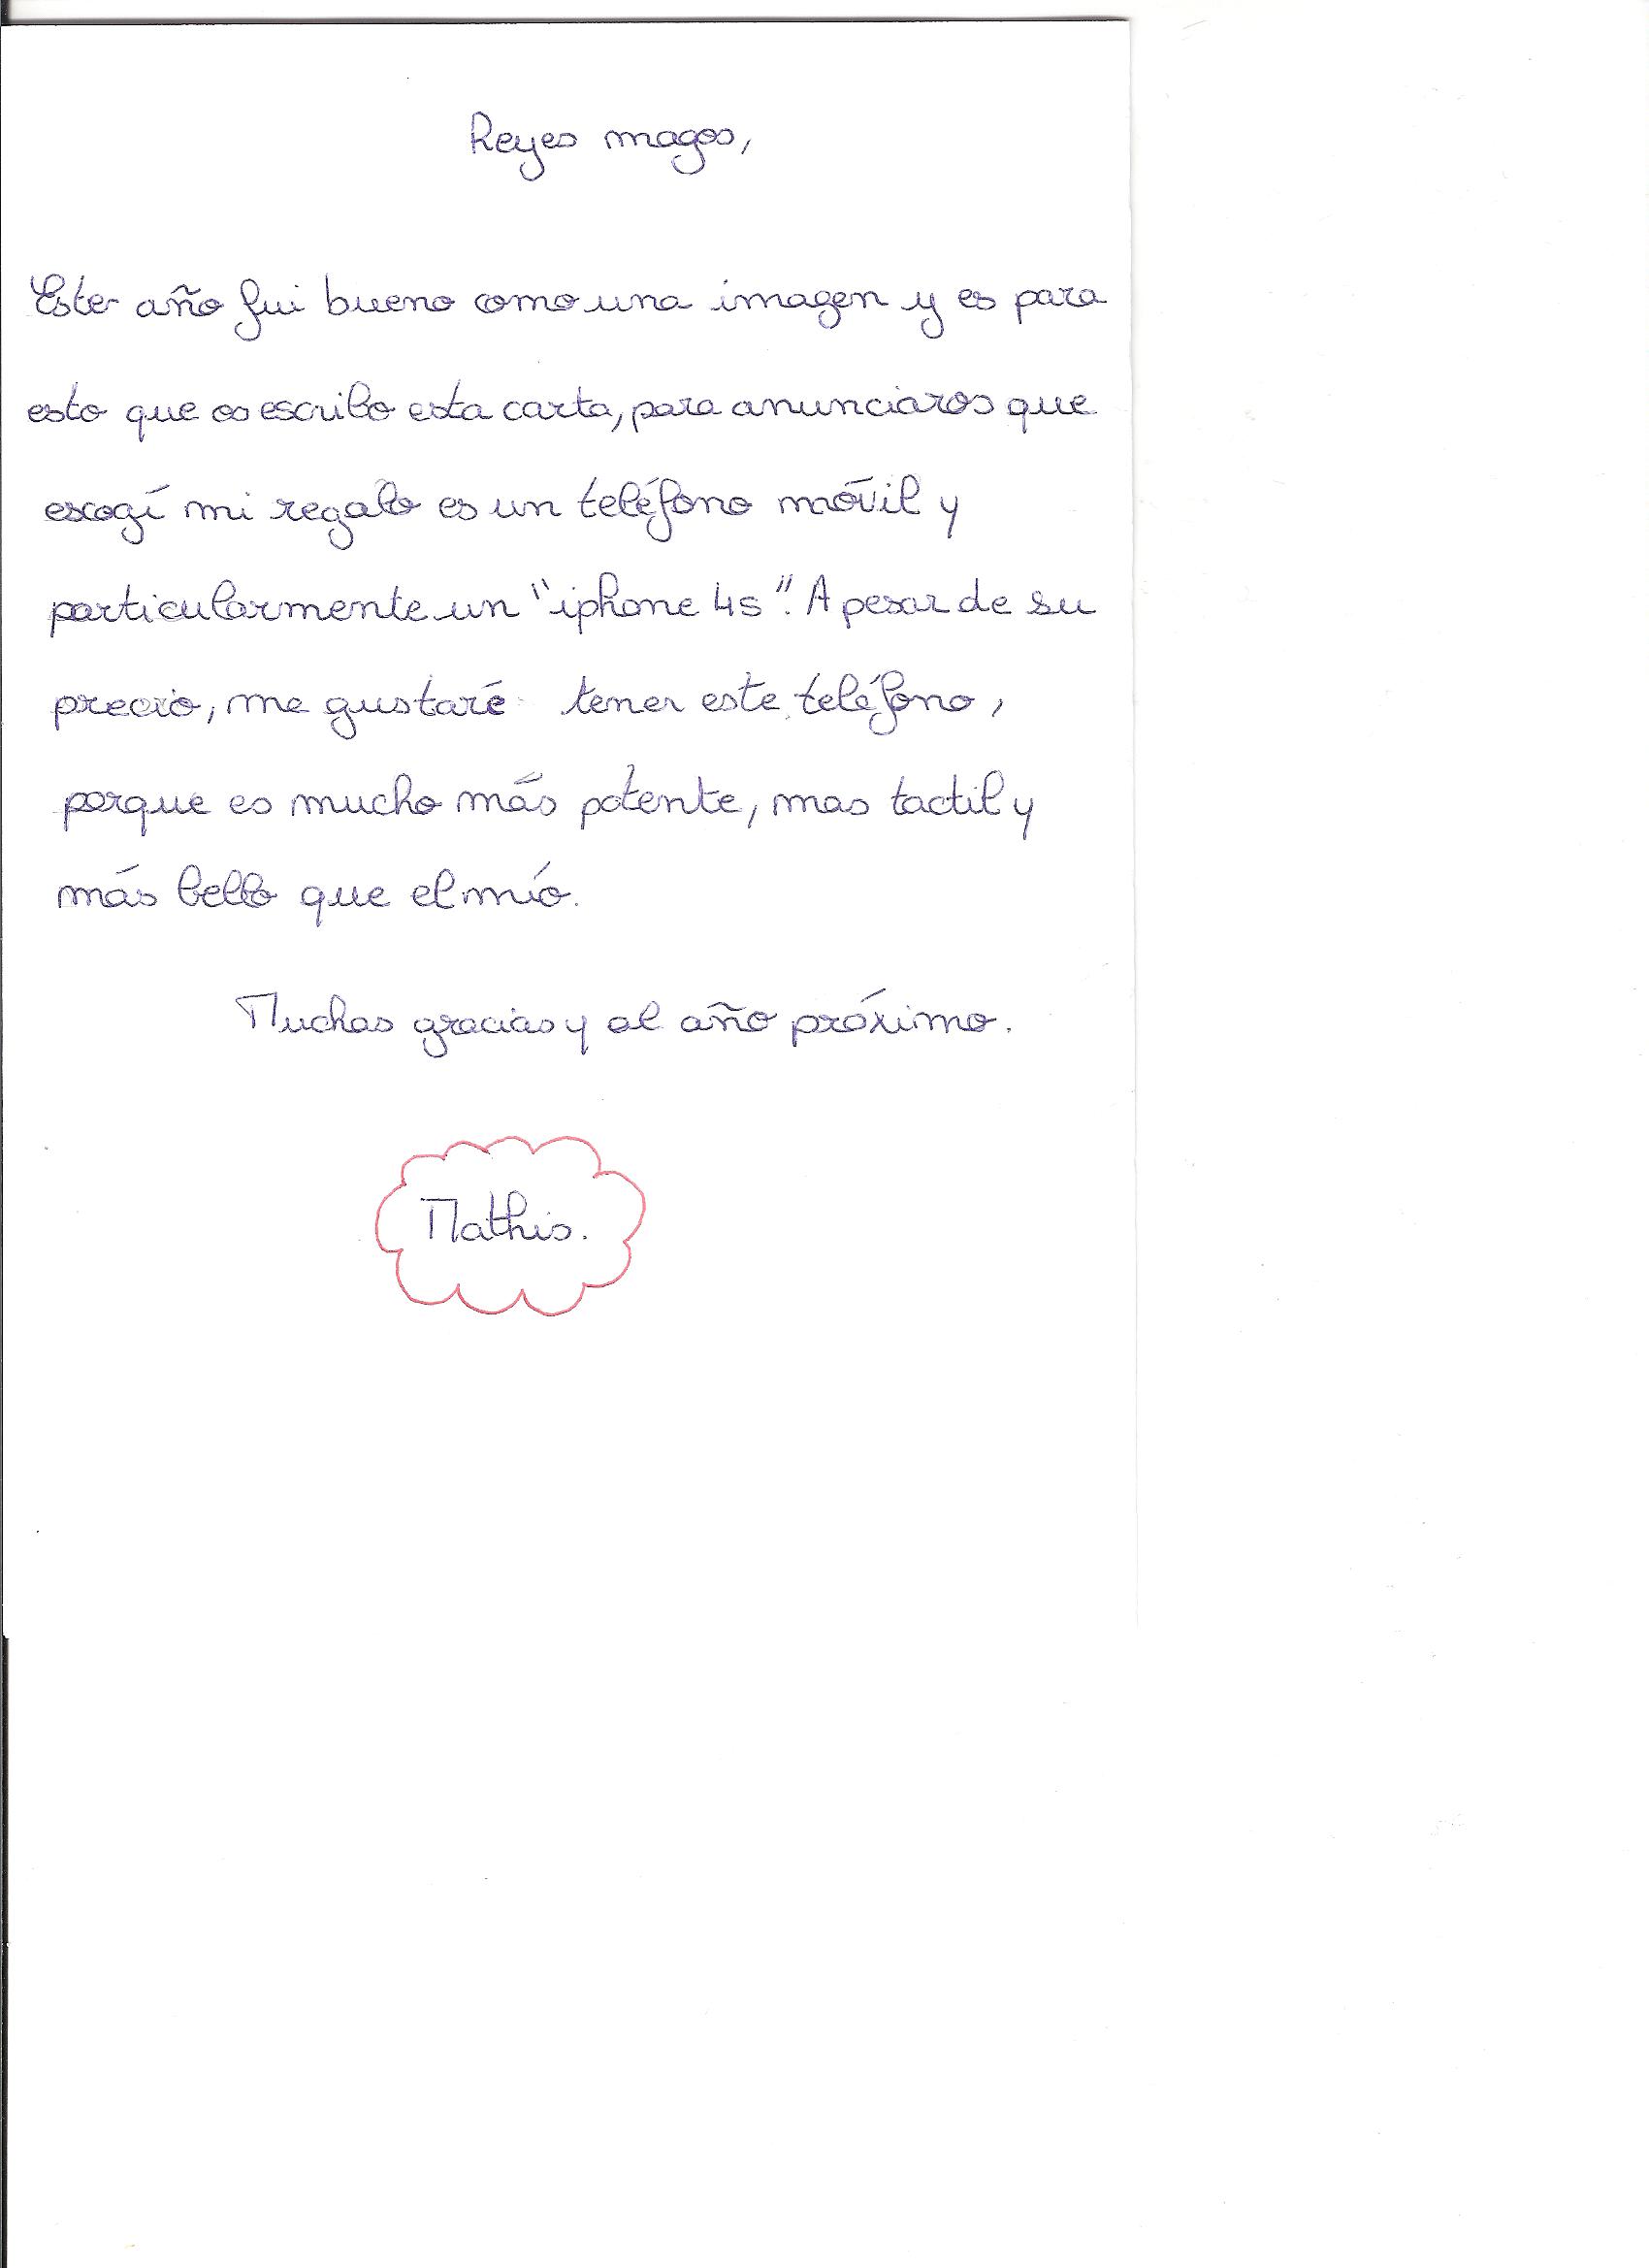 Reyes magos,
Este año fui bueno como una imagen y es para
esto que os escribo esta carta, para anunciaros que
escogí mi regalo es un teléfono móvil y
particularmente un "iphone 4s". A pesar de su
precio, me gustaré tener este teléfono,
porque es mucho más potente, mas tactil y
más bello que el mío.
Muchas gracias y al año próximo.
Mathis.